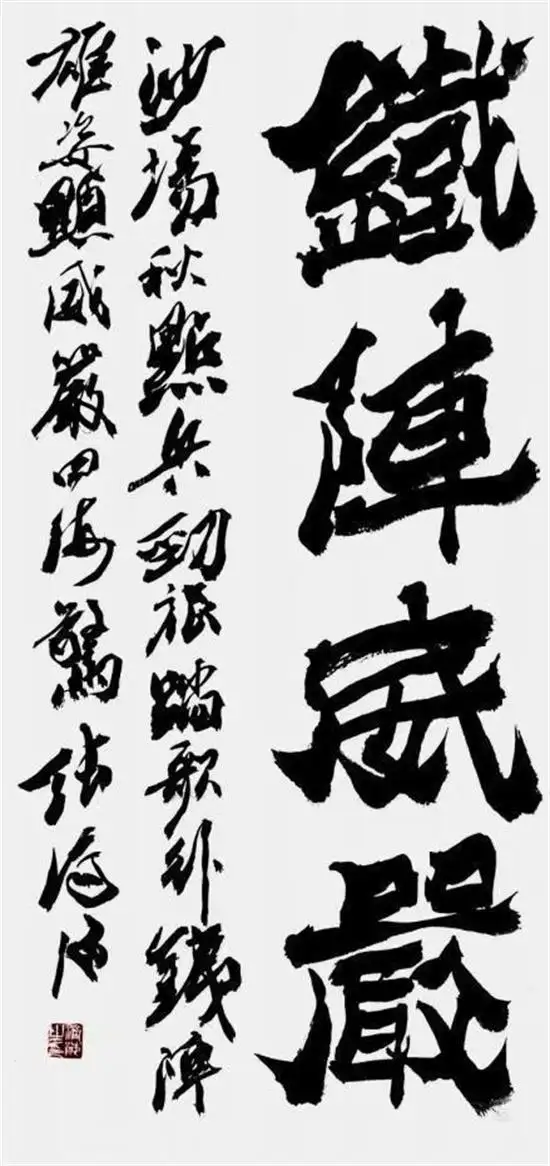 鐵陣威嚴
沙場秋點兵勁旅踏歌行鐵陣
雄姿顯威嚴四海驚張